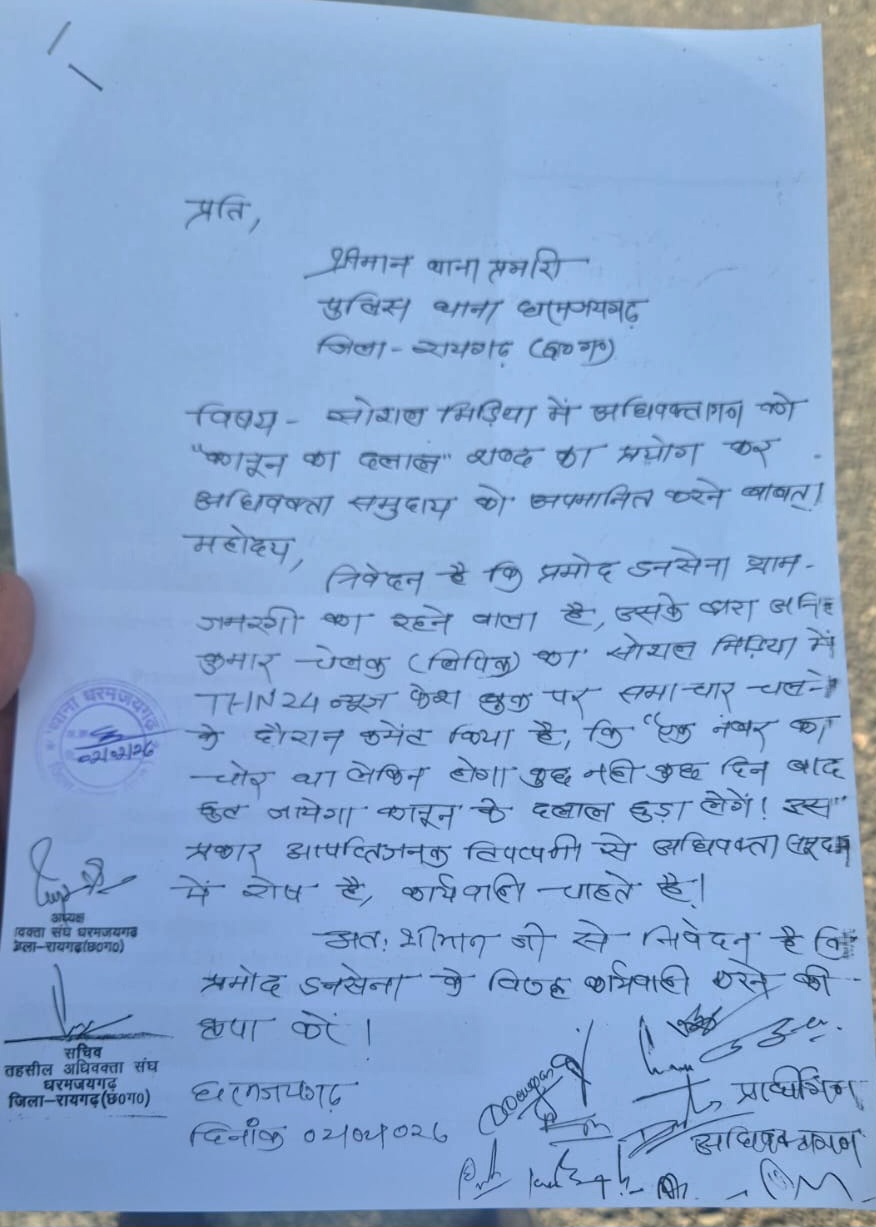 प्रति,
श्रीमान थाना प्रभारी
पुलिस थाना धरमजयगढ़
जिला - रायगढ़ (छ०ग०)
विषय - सोशल मिडिया में अधिवक्तागण को
"कानून का दलाल" शब्द का प्रयोग कर
अधिवक्ता समुदाय को अपमानित करने बाबत्।
महोदय,
निवेदन है कि प्रमोद डनसेना ग्राम -
का रहने वाला है, उसके द्वारा
कुमार चेलक (लिपिक) का सोशल मिडिया में
THN 24 न्यूज फेश बुक पर समाचार चलने
के दौरान कमेंट किया है, कि "एक नंबर का
चोर था लेकिन होगा कुछ नही कुछ दिन बाद
छुट जायेगा कानून के दलाल छुड़ा लेगें। इस"
प्रकार आपत्तिजनक टिपण्णी से अधिवक्ता
में रोष है, कार्यवाही चाहते है।
अतः श्रीमान जी से निवेदन है कि
प्रमोद डनसेना के विरुद्ध कार्यवाही करने की
कृपा करें।
धरमजयगढ़
दिनाँक
प्रार्थीगण
अधिवक्तागण
थाना धरमजयगढ़
02/02/26
अध्यक्ष
वक्ता संघ धरमजयगढ़
जला-रायगढ़(छ0ग0)
सचिव
तहसील अधिवक्ता संघ
धरमजयगढ़
जिला-रायगढ़(छ0ग0)